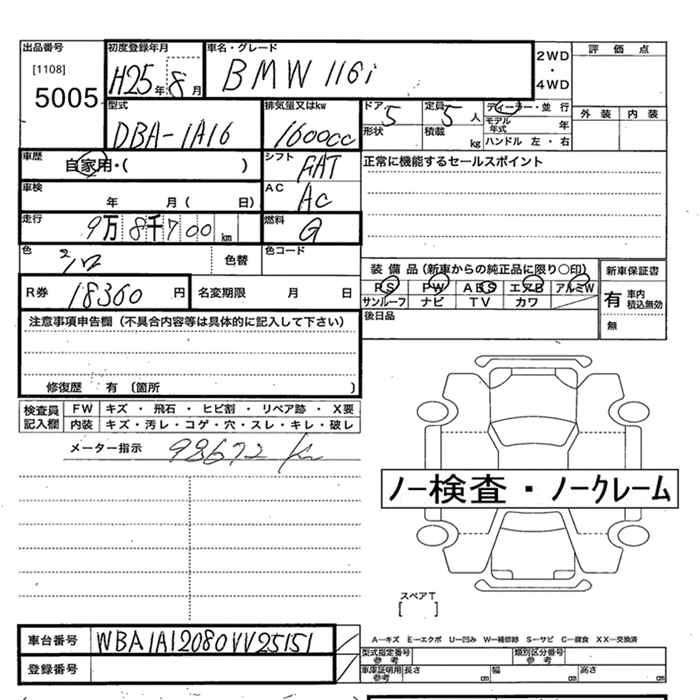 出品番号 初度登録年月 車名・グレード 2WD ・ 4WD 評価点
[1108] H25年8月 BMW 116i
5005
型式 排気量又はkw ドア 5 定員 5人 ディーラー・並行 外装 内装
DBA-1A16 1600cc 形状 積載 kg モデル年式 年
ハンドル 左・右
車歴 自家用・( ) シフト FAT 正常に機能するセールスポイント
車検 年 月( 日) AC AC
走行 9万8千700km 燃料 G
色 色替 色コード
装備品(新車からの純正品に限り○印) 新車保証書
R券 18360円 名変期限 月 日 PS PW ABS エアB アルミW 有 車内積込無効
サンルーフ ナビ TV カワ
注意事項申告欄(不具合内容等は具体的に記入して下さい) 後日品 無
修復歴 有 (箇所 )
検査員記入欄 FW キズ・飛石・ヒビ割・リペア跡・X要
内装 キズ・汚レ・コゲ・穴・スレ・キレ・破レ
メーター指示 98672 km
ノー検査・ノークレーム
スペアT
[ ]
車台番号 WBA1A12080VV25151 A－キズ E－エクボ U－凹み W－補修跡 S－サビ C－腐食 XX－交換済
型式指定番号 参考 類別区分番号 参考
登録番号 車庫証明用 参考 長さ cm 幅 cm 高さ cm